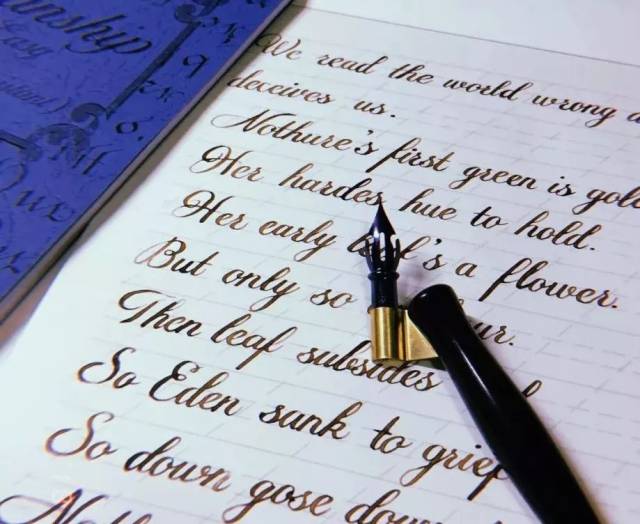 We read the world wrong
deceives us.
Nothure's first green is gold
Her hardes hue to hold.
Her early a flower.
But only so
Then leaf subsides
So Eden sank to grief
So down gose